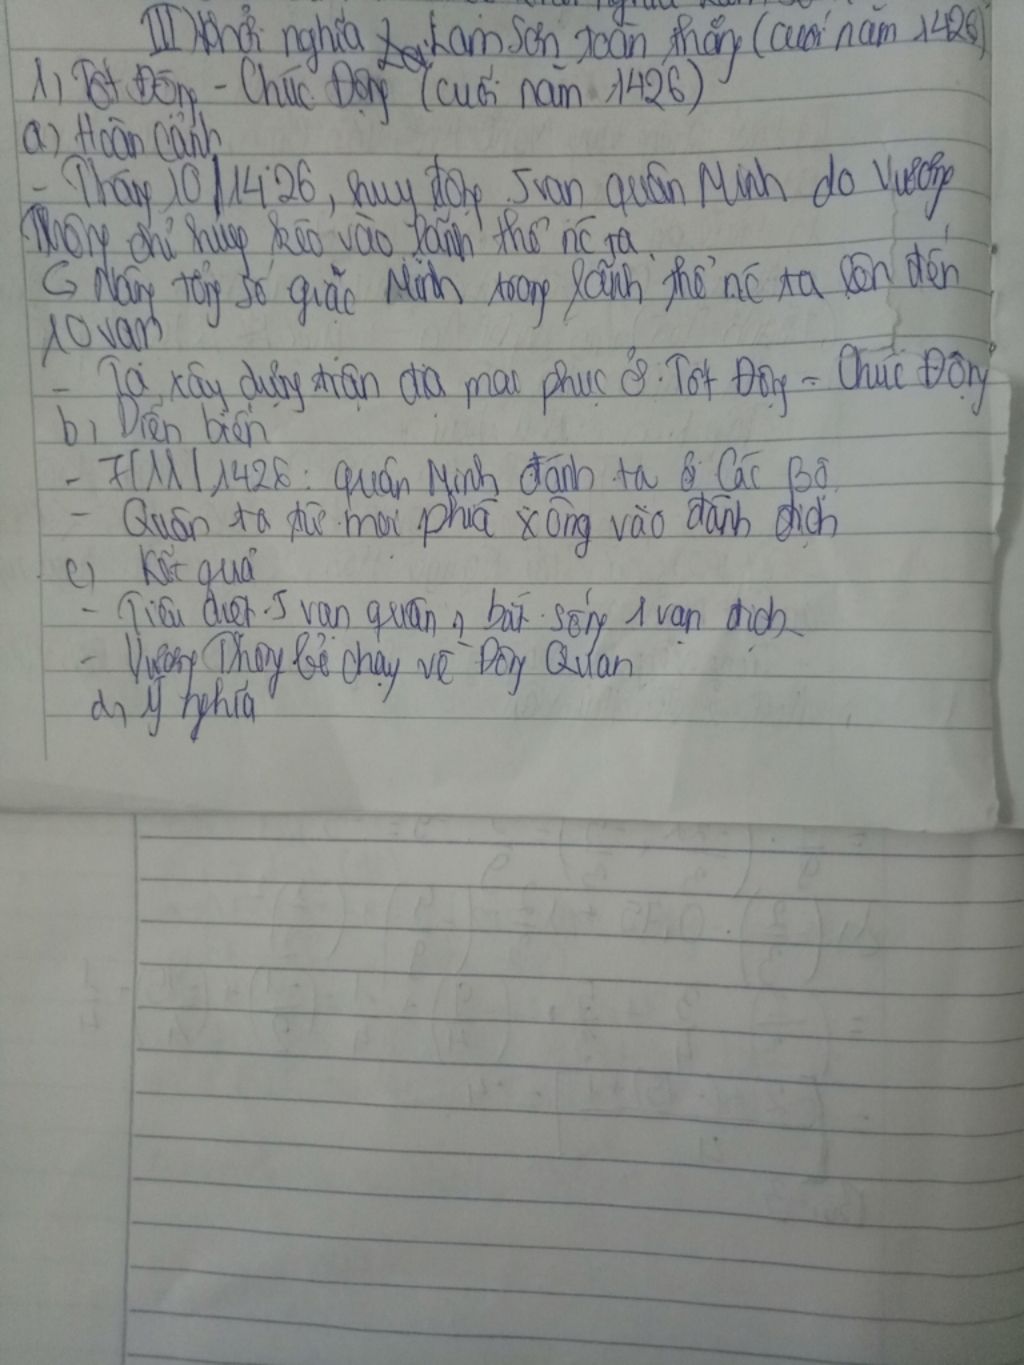 III) Khởi nghĩa Lam Sơn toàn thắng (cuối năm 1426)
1) Tốt Động - Chúc Động (cuối năm 1426)
a) Hoàn cảnh
- Tháng 10/1426, huy động 5 vạn quân Minh do Vương
Thông chỉ huy kéo vào lãnh thổ nc ta
Nâng tổng số giặc Minh trong lãnh thổ nc ta lên đến
10 vạn
- Ta xây dựng trận địa mai phục ở Tốt Động - Chúc Động
b) Diễn biến
- 7/11/1426: quân Minh đánh ta ở Các Bộ
- Quân ta từ mọi phía xông vào đánh địch
c) Kết quả
- Tiêu diệt 5 vạn quân, bắt sống 1 vạn địch
- Vương Thông bỏ chạy về Đông Quan
d) Ý nghĩa